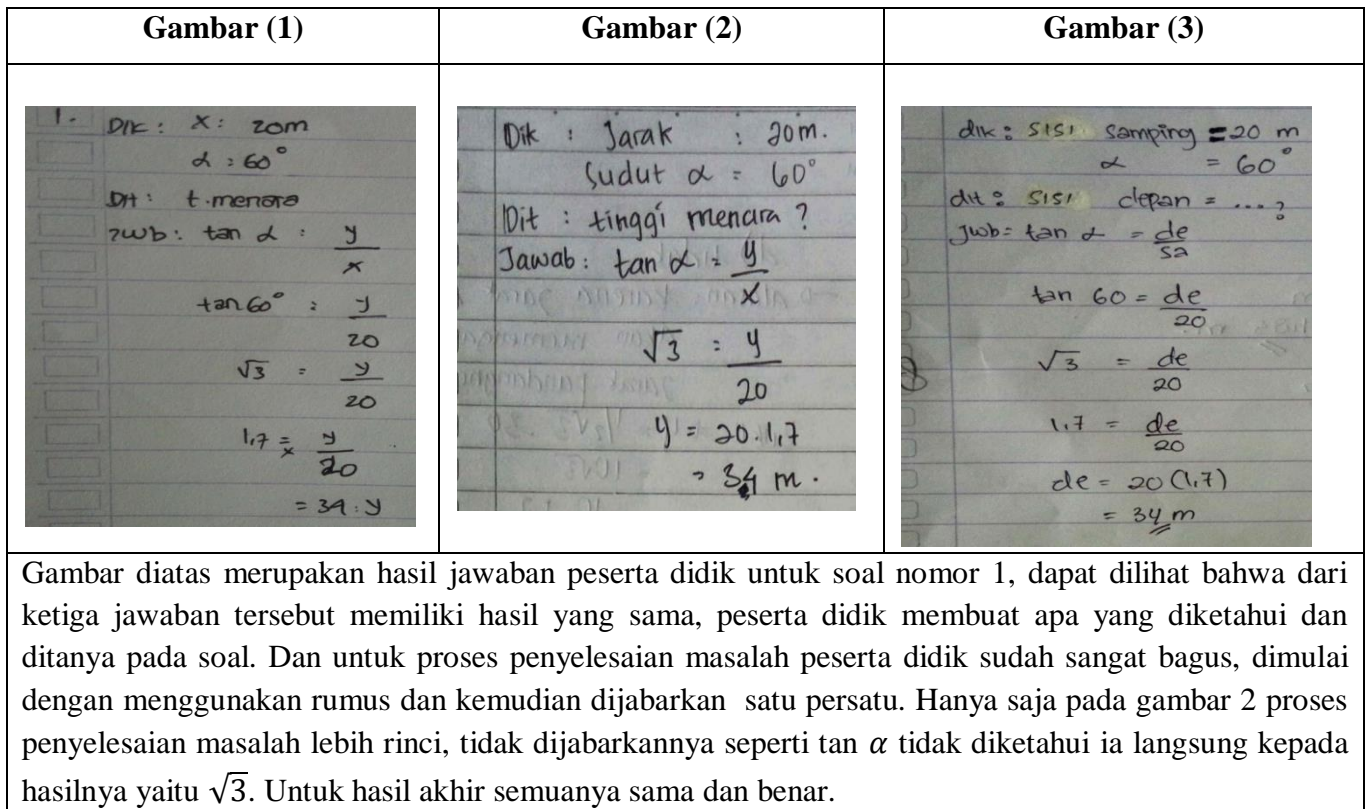 Gambar (1)
Gambar (2)
Gambar (3)
1. Dik : x : 20m
α : 60°
Dit : t. menara
Jwb : tan α : y
x
tan 60° : y
20
√3 = y
20
1,7 = y
x 20
= 34 : y
Dik : Jarak : 20m.
Sudut α = 60°
Dit : tinggi menara ?
Jawab : tan α = y
x
√3 = y
20
y = 20.1,7
= 34 m.
dik : sisi samping = 20 m
α = 60°
dit : sisi depan = ... ?
Jwb = tan α = de
sa
tan 60 = de
20
√3 = de
20
1,7 = de
20
de = 20 (1,7)
= 34 m
Gambar diatas merupakan hasil jawaban peserta didik untuk soal nomor 1, dapat dilihat bahwa dari
ketiga jawaban tersebut memiliki hasil yang sama, peserta didik membuat apa yang diketahui dan
ditanya pada soal. Dan untuk proses penyelesaian masalah peserta didik sudah sangat bagus, dimulai
dengan menggunakan rumus dan kemudian dijabarkan satu persatu. Hanya saja pada gambar 2 proses
penyelesaian masalah lebih rinci, tidak dijabarkannya seperti tan α tidak diketahui ia langsung kepada
hasilnya yaitu √3. Untuk hasil akhir semuanya sama dan benar.